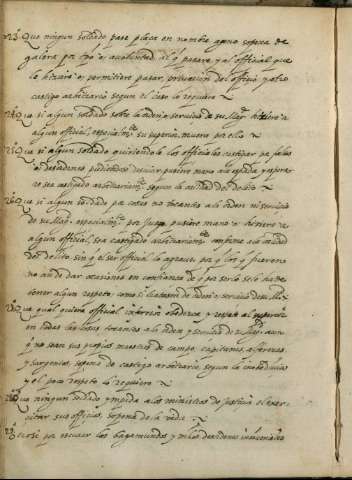 23 Que ningun soldado pase plaça en nombre ageno so pena de
galera por tpo o a voluntad al q pasare y al official que
lo hiziere o permitiere pasar, privacion del officio y otro
castigo arbitrario segun el caso lo requiere
24 Que si algun soldado sobre la orden o servicio de su Magd hiriere a
algun official, especialmte su superior, muera por ello
25 Que si algun soldado queriendole los officiales castigar por faltas
o desordenes pudiendose desviar pusiere mano a la espada
sea castigado arbitrariamte segun la calidad del delito
26 Que si algun soldado por cosas no tocantes a la orden ni servicio
de su Magd, especialmte por juego pusiere mano o hiriere a
algun official, sea castigado arbitrariamte conforme a la calidad
del delito sin q el ser official lo agrave por q los q fueren
no anden dar ocasiones en confiança de q por serlo se les ha de
tener algun respeto, como si tratasen de orden o servicio de su Magd
27 Que qual quiera official inferior obedezca y respete al superior
en todas las cosas tocantes a la orden y servicio de su Magd aun
q no sean sus propios maestros de campo, capitanes, alferezes,
y sargentos so pena de castigo arbitrario segun la inobediencia
y el poco respeto lo requiere
28 Que ningun soldado ympida a los ministros de justicia el exer
citar sus officios, so pena de la vida
29 por escusar los bagamundos y muchos desordenes